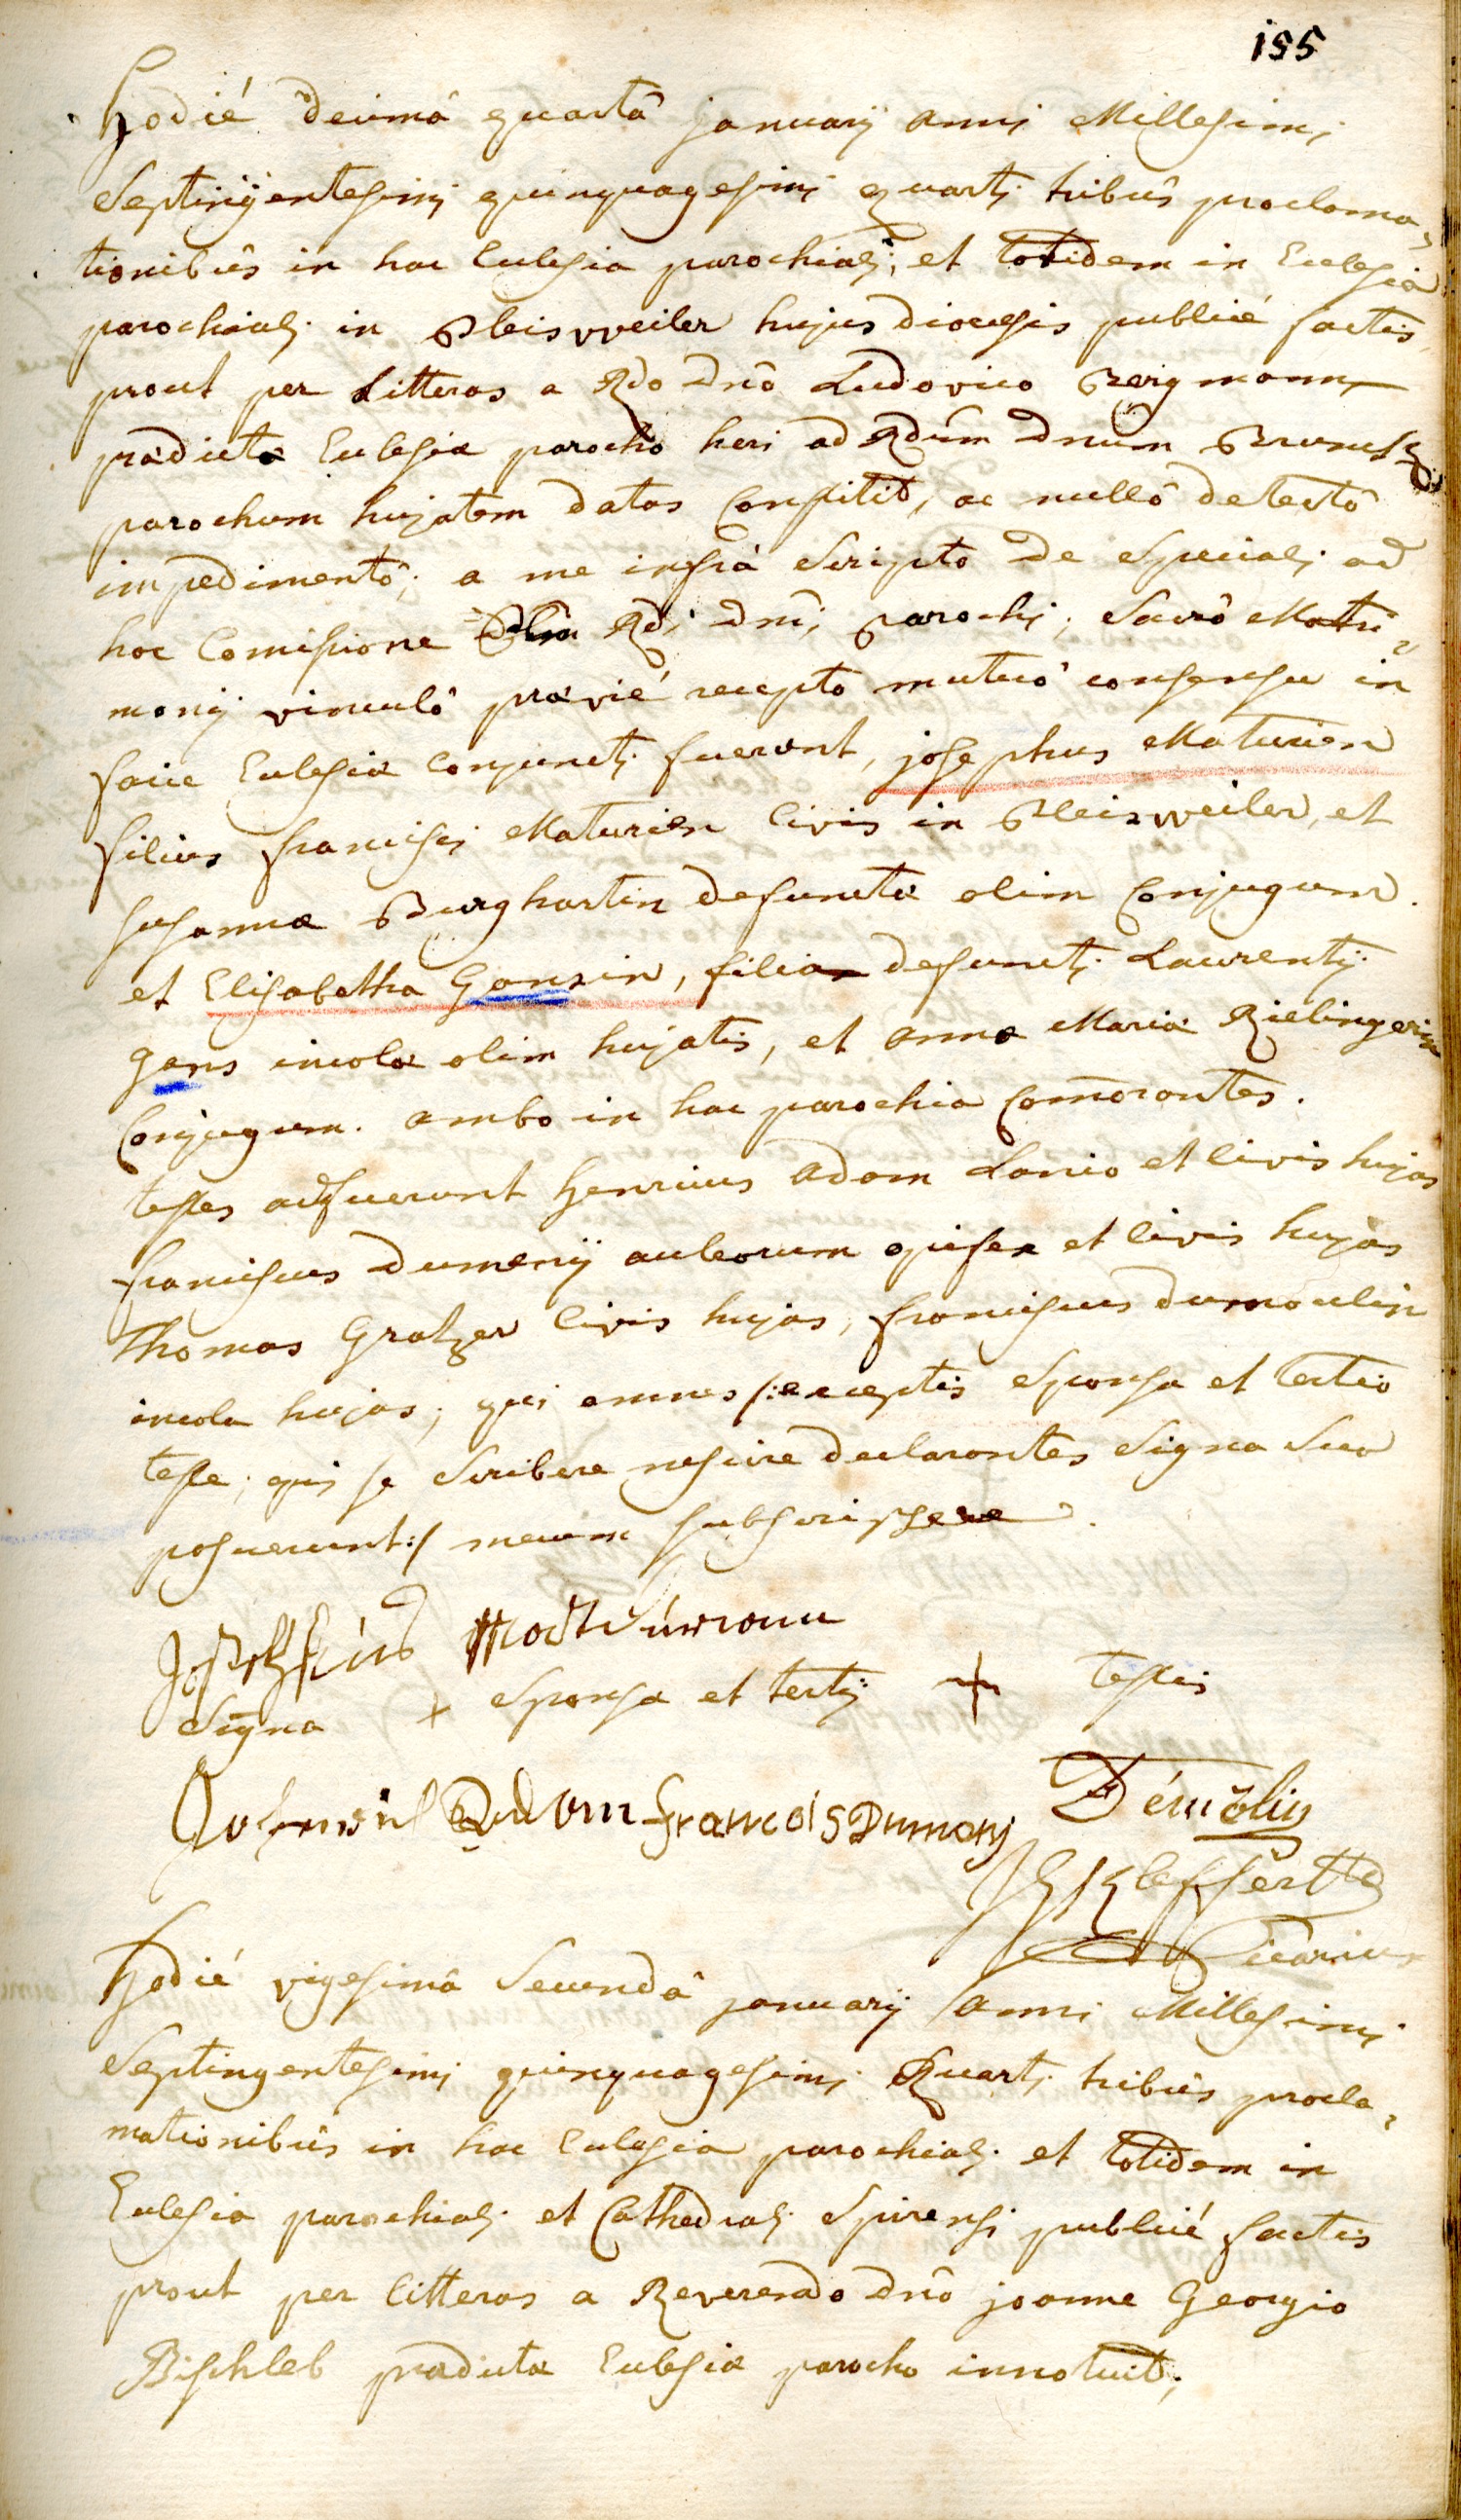 155
Hodié decimâ quartâ januarij anni Millesimi
Septingentesimi quinquagesimi quarti tribûs proclama-
tionibûs in hac Ecclesia parochiali, et totidem in Ecclesia
parochiali in Pleisweiler hujus dioecesis publicé factis,
prout per Litteras a Rdo Dnô Ludovico Bergmann
prædictæ Ecclesiæ parocho heri ad Rdum Dnum
parochum hujatem datas Constitit, ac nullô detectô
impedimentô; a me infrà Scripto de Speciali ad
hoc Comissione Rdi Dni parochi, Sacrô Matri-
monij vinculô prævié recepto mutuô consensu in
facie Ecclesiæ Conjuncti fuerunt, josephus Maturien
filius francisci Maturien Civis in Pleisweiler, et
susannæ Burghartin defunctæ olim Conjugum.
et Elisabetha Gansin, filia defuncti Laurentij
gans incolæ olim hujatis, et annæ Mariæ Rielingerin
Conjugum. ambo in hac parochia Comorantes.
testes adfuerunt henricus adam Lanio et civis hujas
franciscus Dumenij aulæorum opifex et Civis hujas
Thomas Gratzer Civis hujas, franciscus dumoulin
incola hujas; qui omnes /:exceptis Sponsa et tertio
teste, qui se Scribere nescire declarantes Signa Sua
posuerunt:/ mecum subscripsere.
Signa + Sponsæ et tertij + testis
Adam francois Dumeny Démolin
Vicarius
Hodié vigesimâ Secundâ januarij anni Millesimi
Septingentesimi quinquagesimi Quarti tribûs procla-
mationibûs in hac Ecclesia parochiali et totidem in
Ecclesia parochiali et Cathedrali Spirensi publicé factis
prout per litteras a Reverendo dnô joanne Georgio
Bischleb prædictæ Ecclesiæ parocho innotuit,